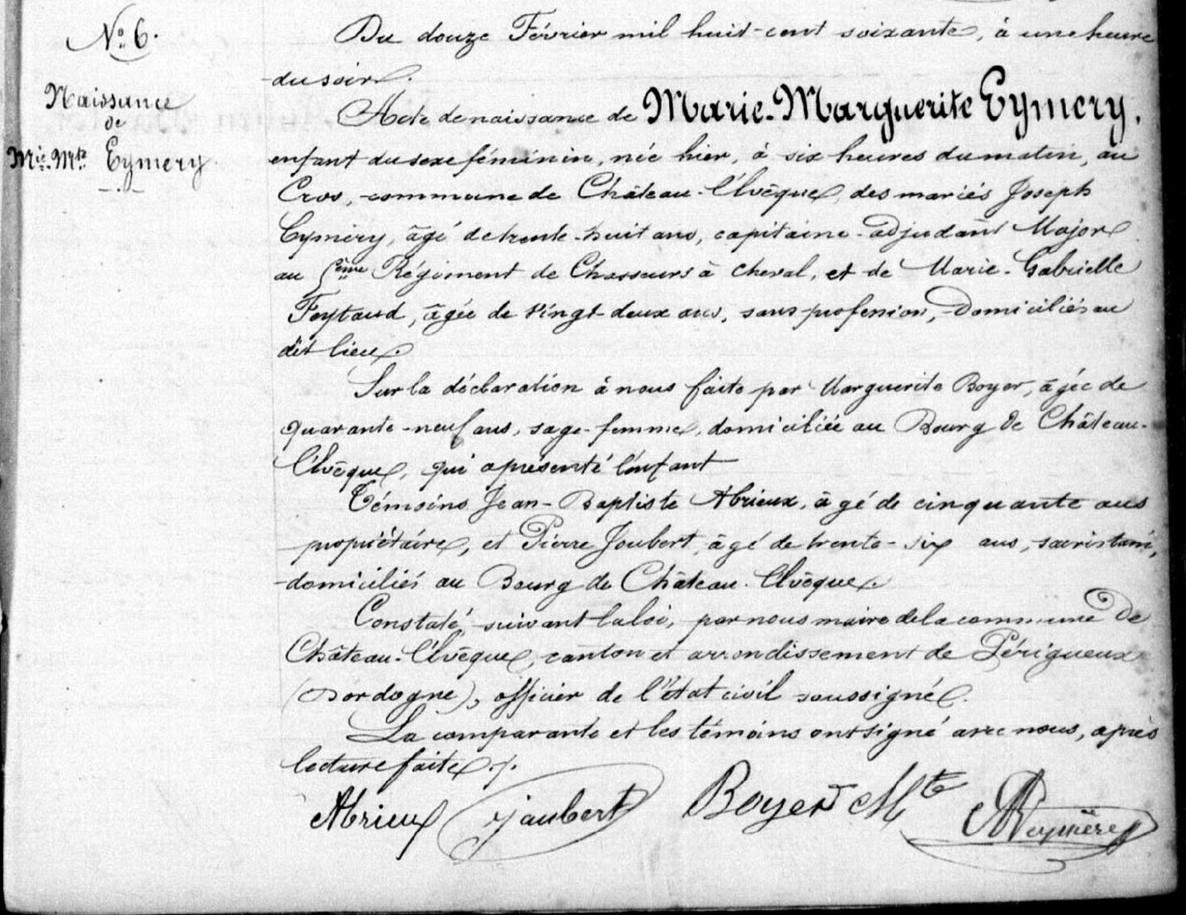 N.º 6.
Naissance
de
Mie. Mte. Eymery
Du douze Février mil huit-cent soixante, à une heure
du soir.
Acte de naissance de Marie-Marguerite Eymery,
enfant du sexe féminin, née hier, à six heures du matin, au
Cros, commune de Château-l'Evêque, des mariés Joseph
Eymery, âgé de trente-huit ans, capitaine-adjudant Major
au Régiment de Chasseurs à cheval, et de Marie-Gabrielle
Feytaud, âgée de vingt-deux ans, sans profession, domiciliés au
dit lieu.
Sur la déclaration à nous faite par Marguerite Boyer, âgée de
quarante-neuf ans, sage-femme, domiciliée au Bourg de Château-
l'Evêque, qui a présenté l'enfant
Témoins Jean-Baptiste Abrieux, âgé de cinquante ans
propriétaire, et Pierre Joubert, âgé de trente-six ans, sacristain,
domiciliés au Bourg de Château-l'Evêque.
Constaté, suivant la loi, par nous maire de la commune de
Château-l'Evêque, canton et arrondissement de Périgueux
(Dordogne), officier de l'état civil soussigné.
La comparante et les témoins ont signé avec nous, après
lecture faite./.
Abrieux Jaubert Boyer Mte